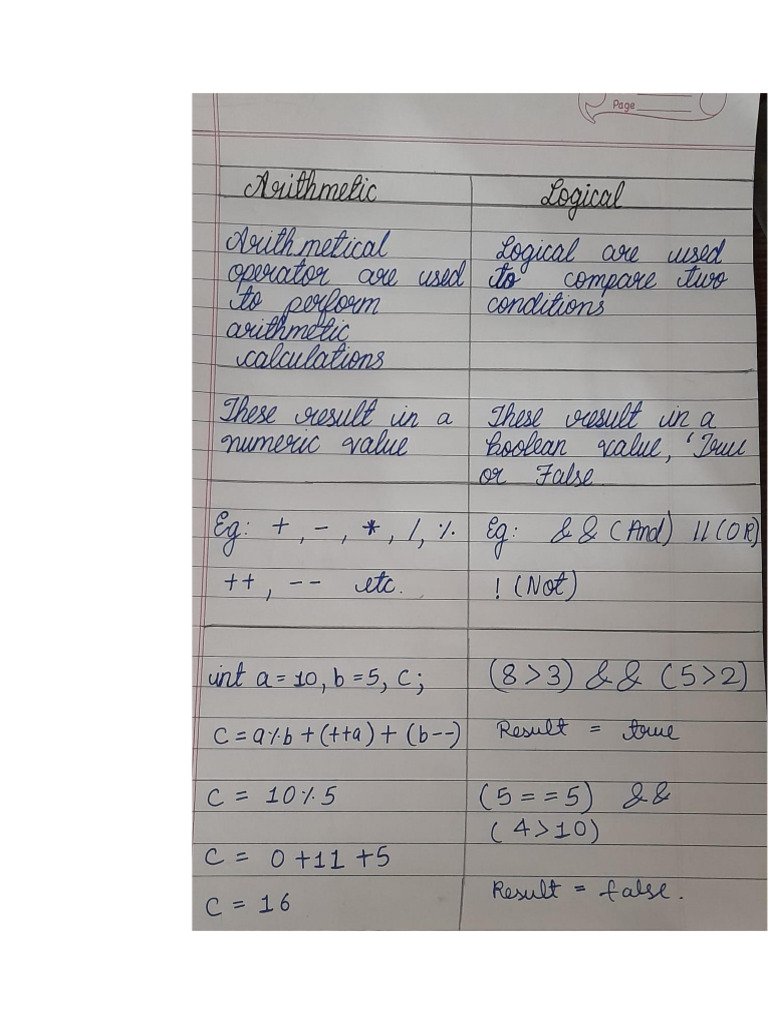 Page
Arithmetic
Logical
Arithmetical
operator are used
to perform
arithmetic
calculations
Logical are used
to compare two
conditions
These result in a
numeric value
These result in a
boolean value, 'True
or False
Eg: +, -, *, /, %
++, -- etc.
Eg: && (And) || (OR)
! (Not)
int a = 10, b = 5, c;
c = a%b + (++a) + (b--)
c = 10%5
c = 0 + 11 + 5
c = 16
(8>3) && (5>2)
Result = true
(5 == 5) &&
(4>10)
Result = false.